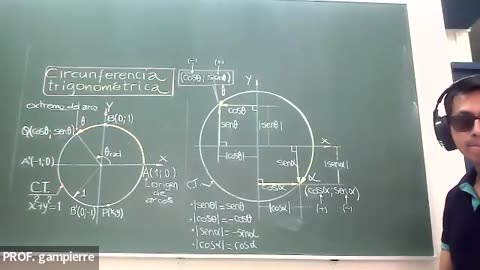 Circunferencia
trigonométrica
extremo del arco
θ
Y
B(0;1)
Q(cosθ; senθ)
θ rad
A'(-1;0)
X
A(1;0)
Lorigen
de
arcos
C.T.
x²+y²=1
1
B'(0;-1)
P(x;y)
(-) (+)
(cosθ; senθ)
Y
θ
cosθ
senθ
|senθ|
|cosθ|
X
senα
|senα|
cosα
α
(cosα; senα)
|cosα|
(-)
•|senθ|=senθ
•|cosθ|=-cosθ
•|senα|=-senα
•|cosα|=cosα
PROF. gampierre